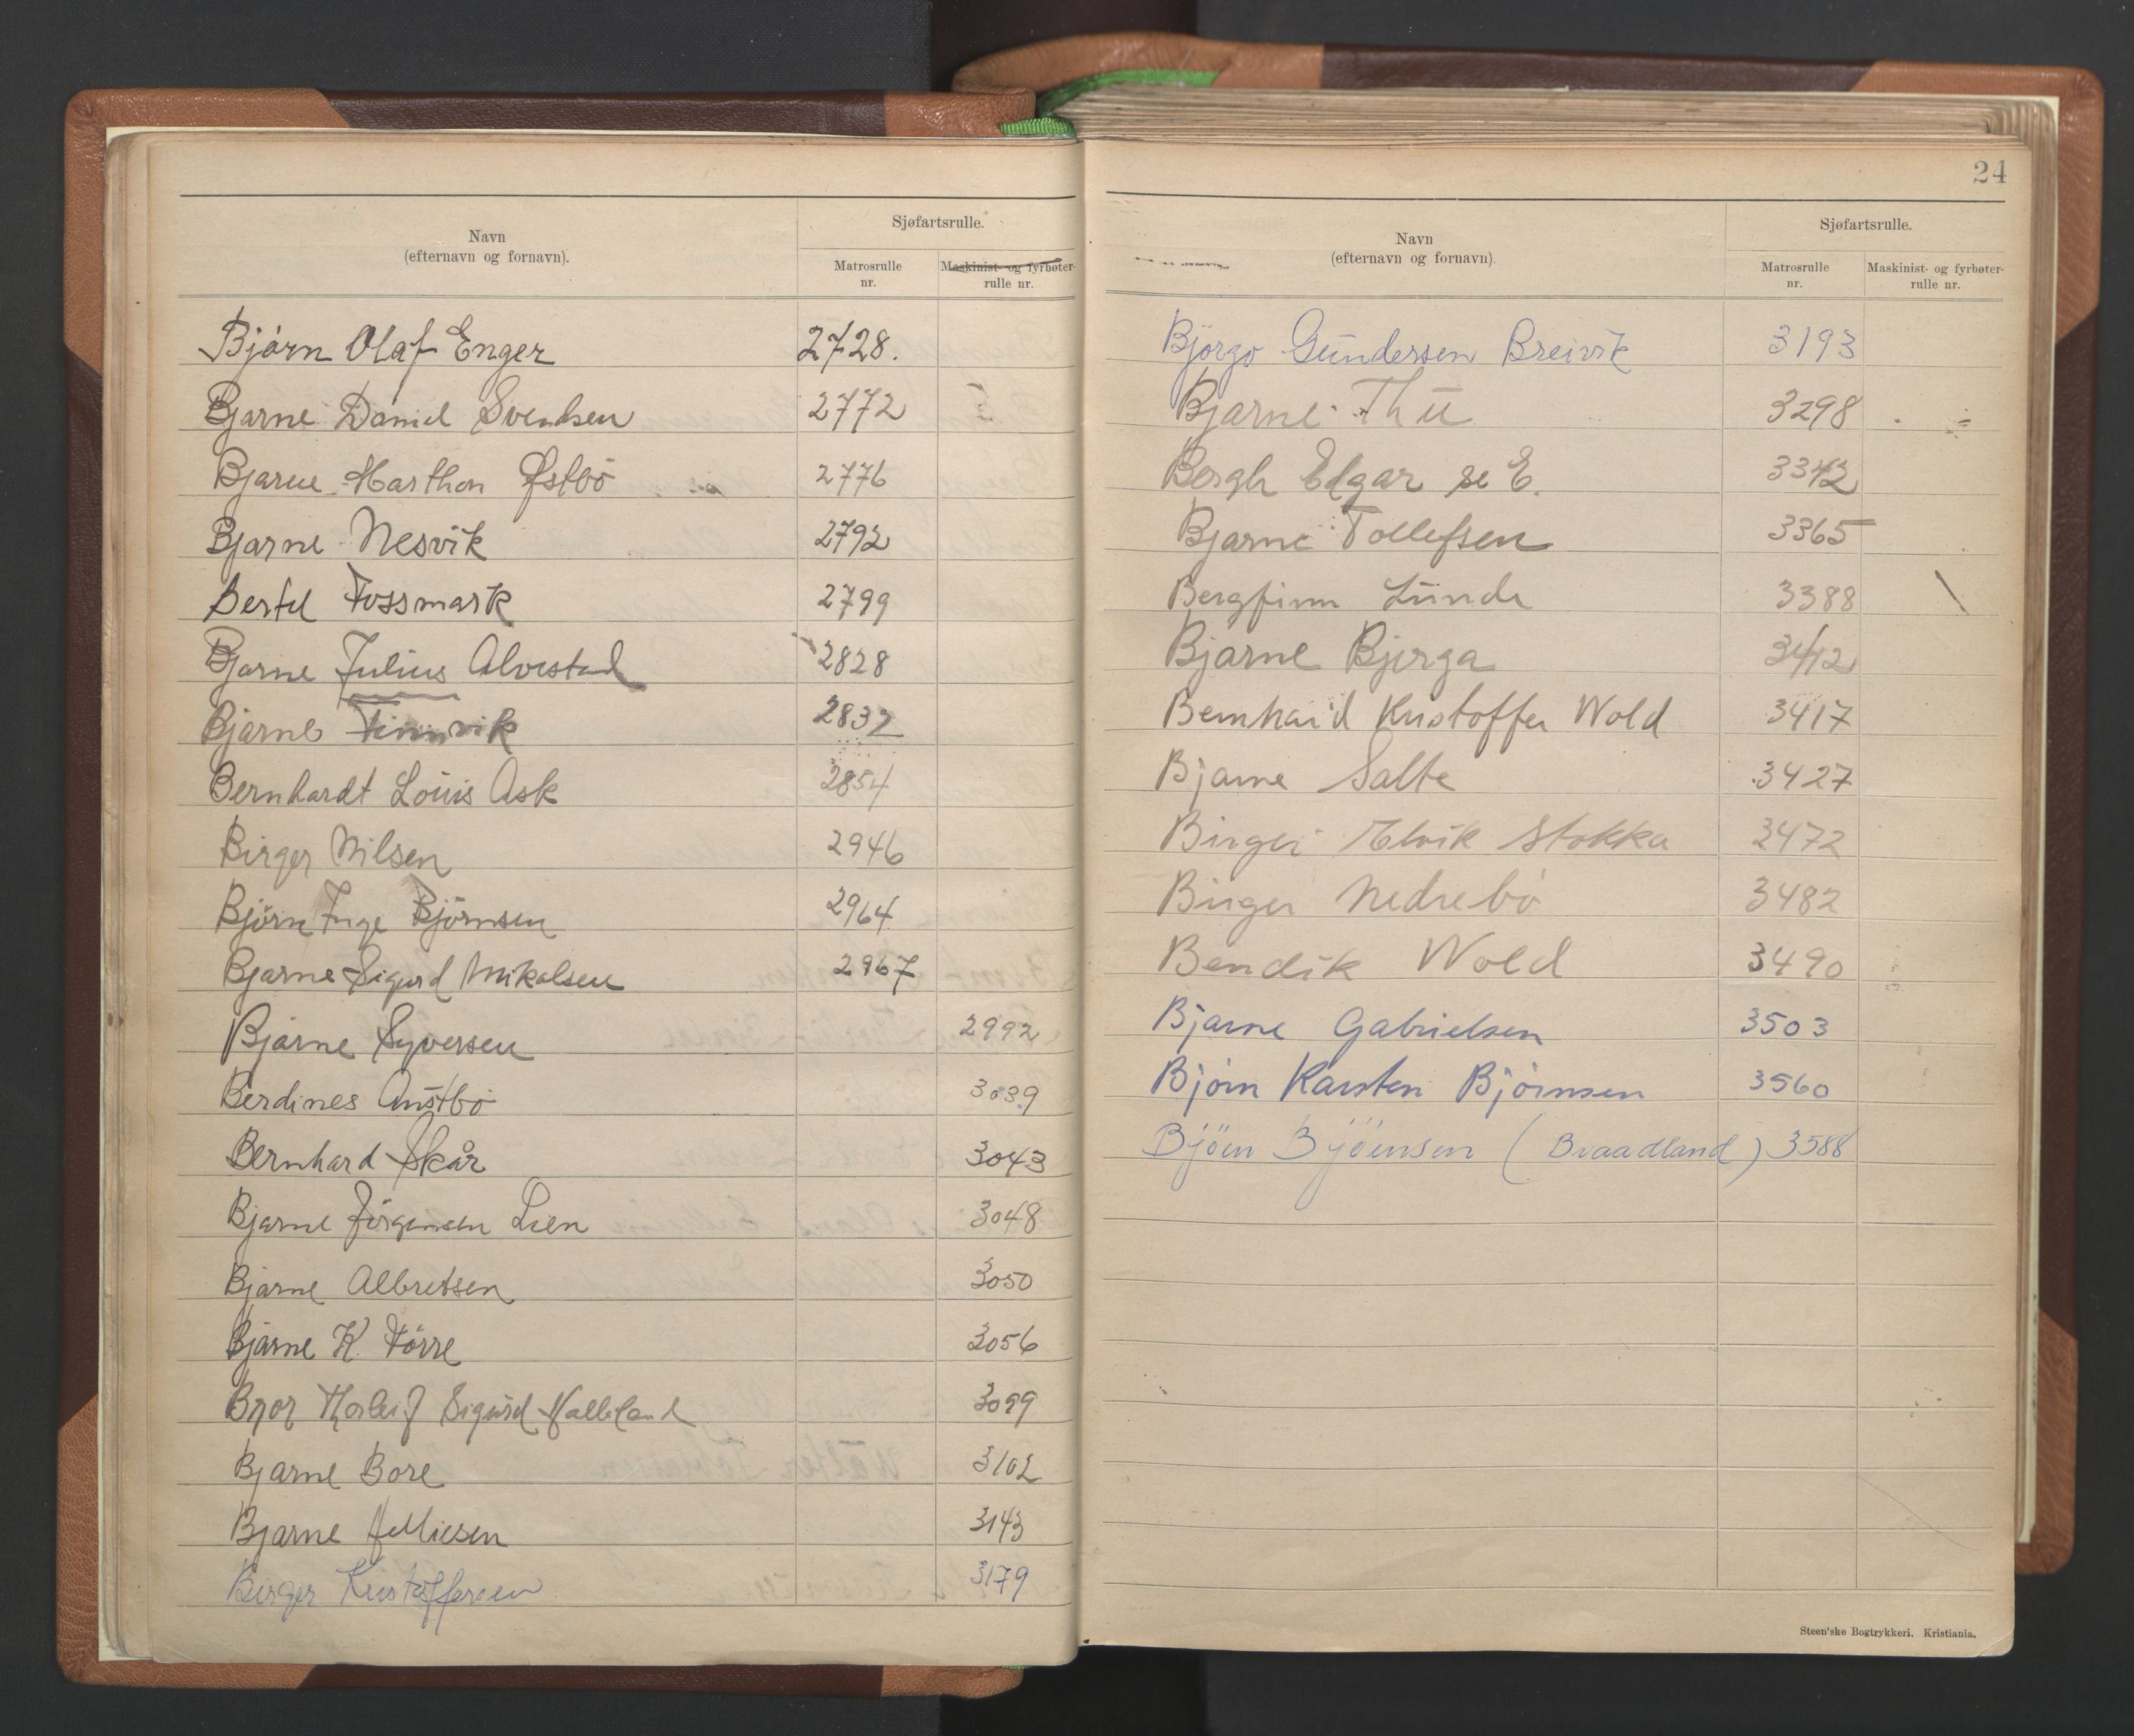 Navn
(efternavn og fornavn).
Sjøfartsrulle.
Matrosrulle
nr.
Maskinist- og fyrbøter-
rulle nr.
Bjørn Olaf Enger 2728.
Bjarne Daniel Svendsen 2772
Bjarne Marthon Østbö 2776
Bjarne Nesvik 2792
Bertel Fossmark 2799
Bjarne Julius Alvestad 2828
Bjarne Finnvik 2832
Bernhardt Louis Ask 2854
Birger Nilsen 2946
Bjørn Inge Björnsen 2964
Bjarne Sigurd Mikalsen 2967
Bjarne Syversen 2992
Berdines Austbö 3039
Bernhard Skår 3043
Bjarne Jörgensen Lien 3048
Bjarne Albretsen 3050
Bjarne K. Förre 3056
Bror Thorleif Sigurd 3099
Bjarne Bore 3102
Bjarne 3143
Birger Kristoffersen 3179
24
Navn
(efternavn og fornavn).
Sjøfartsrulle.
Matrosrulle
nr.
Maskinist- og fyrbøter-
rulle nr.
Björgo Gundersen Breivik 3193
Bjarne Thu 3298
Bergh Edgar se E. 3342
Bjarne Tollefsen 3365
Bergfinn Lunde 3388
Bjarne Bjerga 3412
Bernhard Kristoffer Wold 3417
Bjarne Salte 3427
Birger Elvik Stokka 3472
Birger Nedrebö 3482
Bendik Wold 3490
Bjarne Gabrielsen 3503
Bjørn Karsten Bjørnsen 3560
Björn Björnsen (Braadland) 3588
Steen'ske Bogtrykkeri. Kristiania.